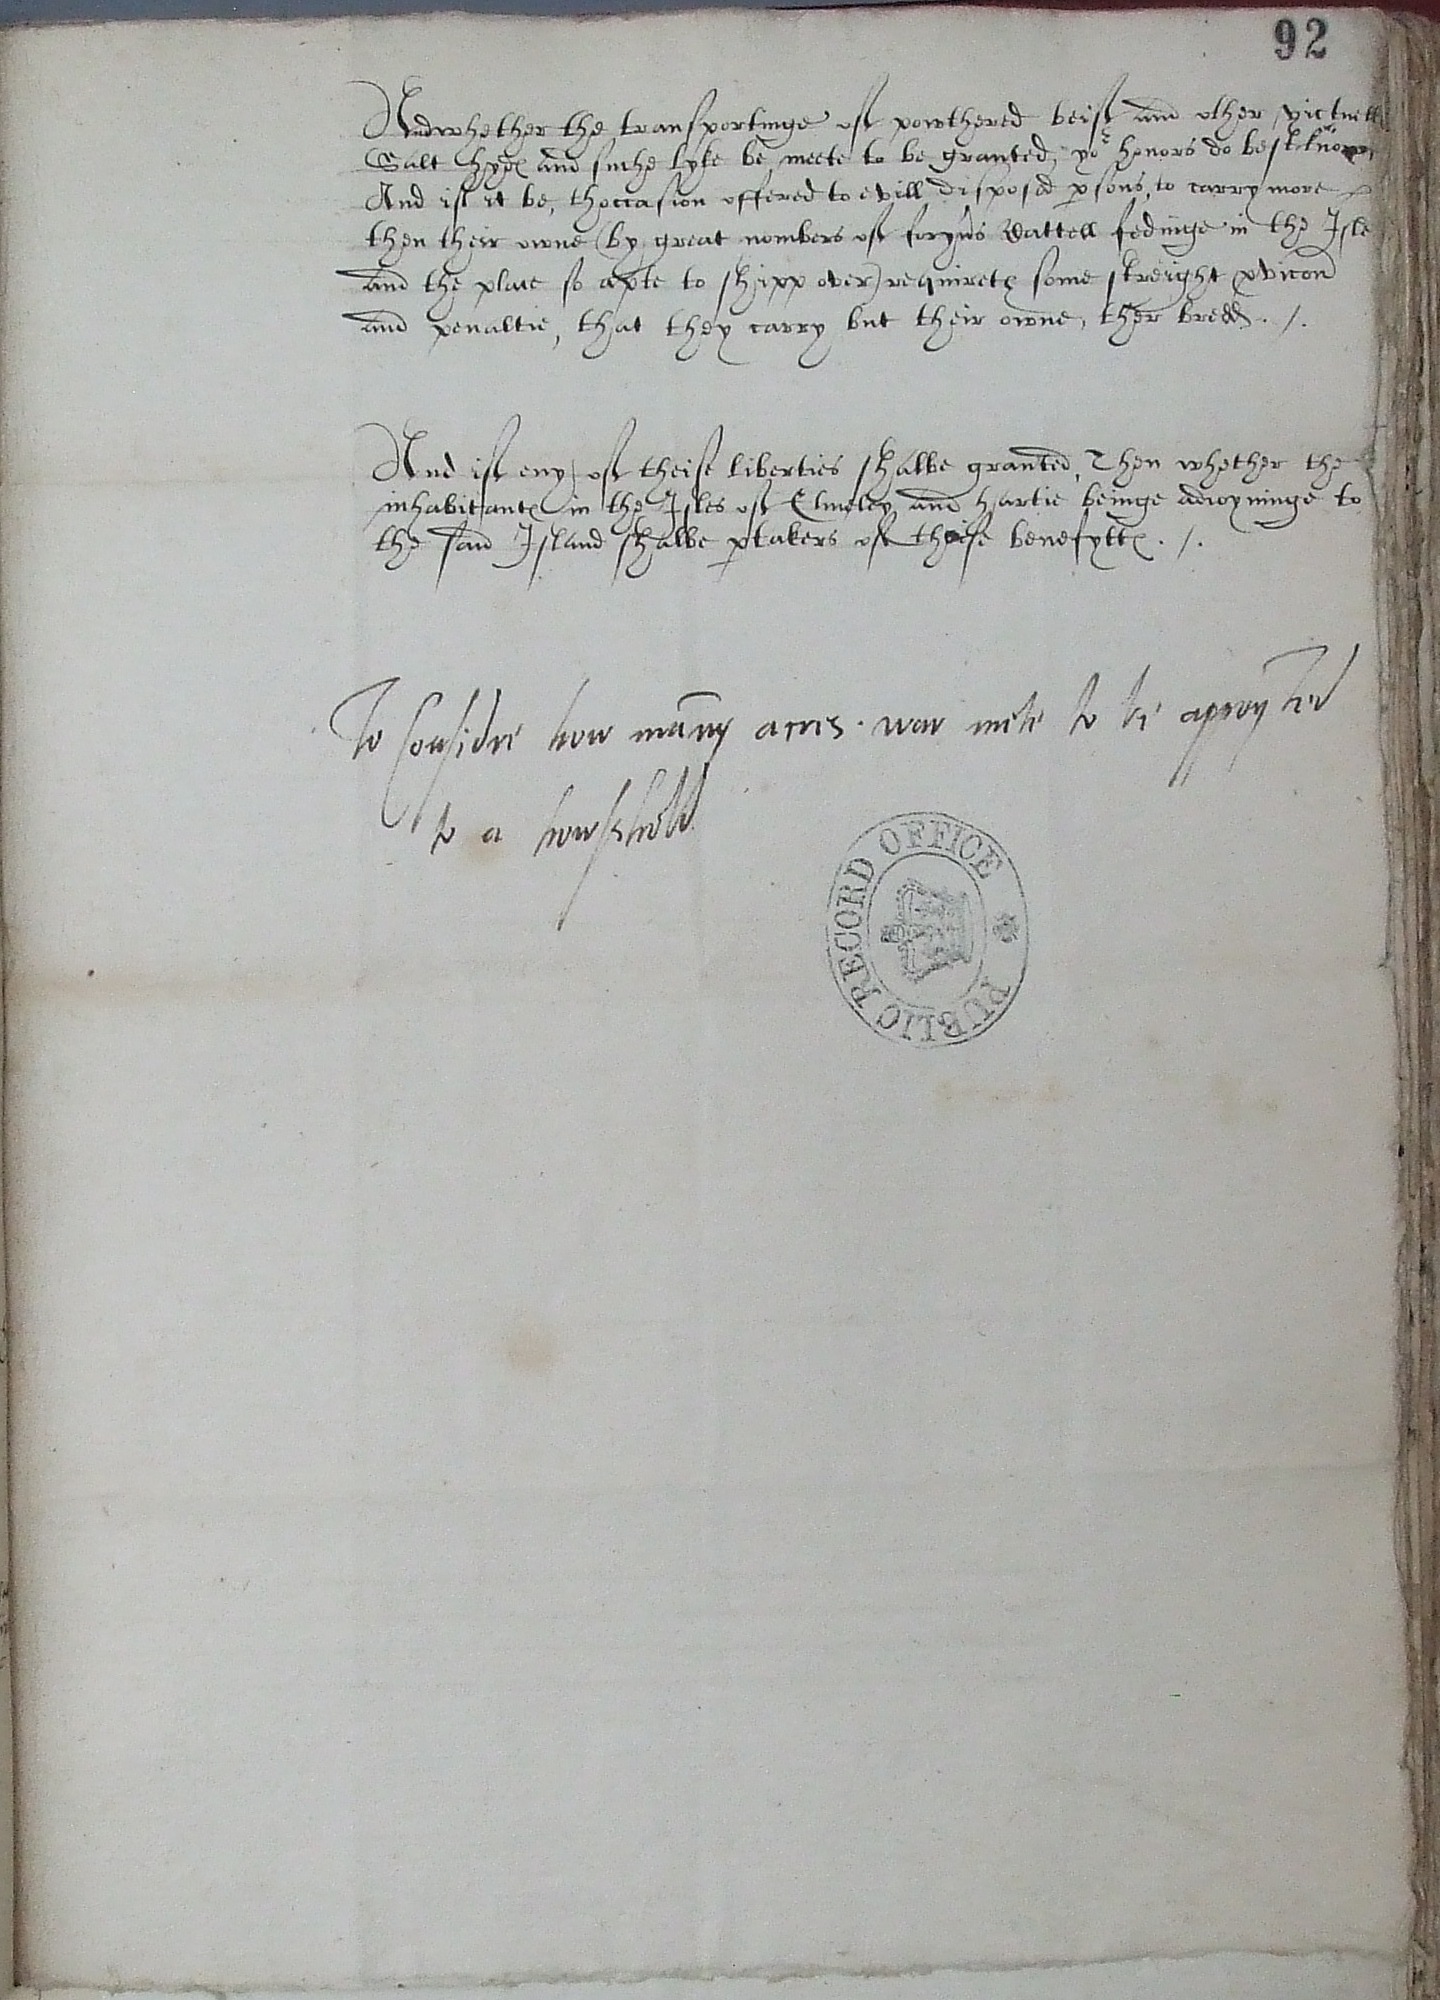 92
And whether the transportinge of powthered beif and other victuell
Salt hyds and suche lyke be meete to be granted, yor honors do best knowe,
And if it be, thoccasion offered to evill disposed psons, to carry more
then their owne (by great nombers of foryns Cattell fedinge in the Isle
and the place so apte to shipp over) requireth some streight pvicon
and penaltie, that they carry but their owne, ther bredd ./.
And if eny of theise liberties shalbe granted, Then whether the
inhabitants in the Isles of Elmeley and hartie beinge adioyninge to
the said Island shalbe ptakers of theise benefytts ./.
To considre how many acres war mete to be apoynted
to a howshold
PUBLIC RECORD OFFICE